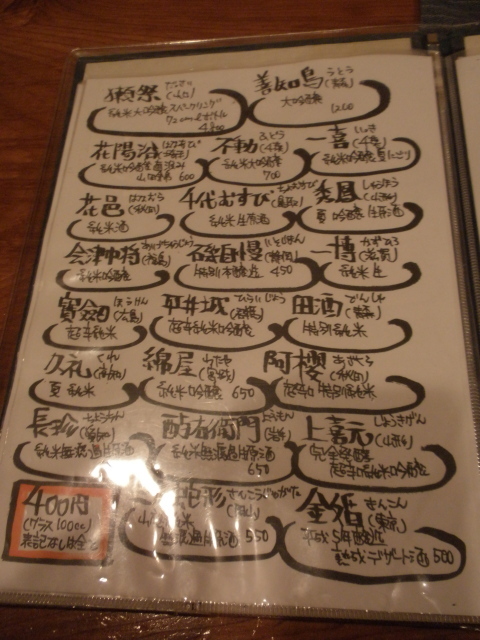 獺祭 だっさい (山口)
純米大吟醸 スパークリング
720mlボトル
4,800
善知鳥 うとう (青森)
大吟醸
1200
花陽浴 はなあび (埼玉)
純米吟醸
山田錦 600
不動 ふどう (千葉)
純米大吟醸
700
一喜 いっき (千葉)
純米吟醸 夏にごり
花邑 はなむら (秋田)
純米酒
千代むすび ちよむすび (鳥取)
純米生原酒
秀鳳 しゅうほう (山形)
夏 吟醸 生原酒
会津中将 あいづちゅうじょう (福島)
純米吟醸
磯自慢 いそじまん (静岡)
特別本醸造 450
一博 かずひろ (滋賀)
純米 生
寳剣 ほうけん (広島)
超辛純米
平井城 ひらいじょう (群馬)
超辛純米吟醸
田酒 でんしゅ (青森)
特別純米
久礼 くれ (高知)
夏 純米
綿屋 わたや (宮城)
純米吟醸 650
阿櫻 あざくら (秋田)
超辛口 特別純米
長珍 ちょうちん (愛知)
純米無濾過生原酒
酉与右衛門 よえもん (岩手)
純米無濾過生原酒
650
上喜元 じょうきげん (山形)
完全発酵
超辛純米吟醸
400円
(グラス100cc)
表記なしは全て
さんこうまさむね (岡山)
550
金婚 きんこん (東京)
熟成デザート酒 500